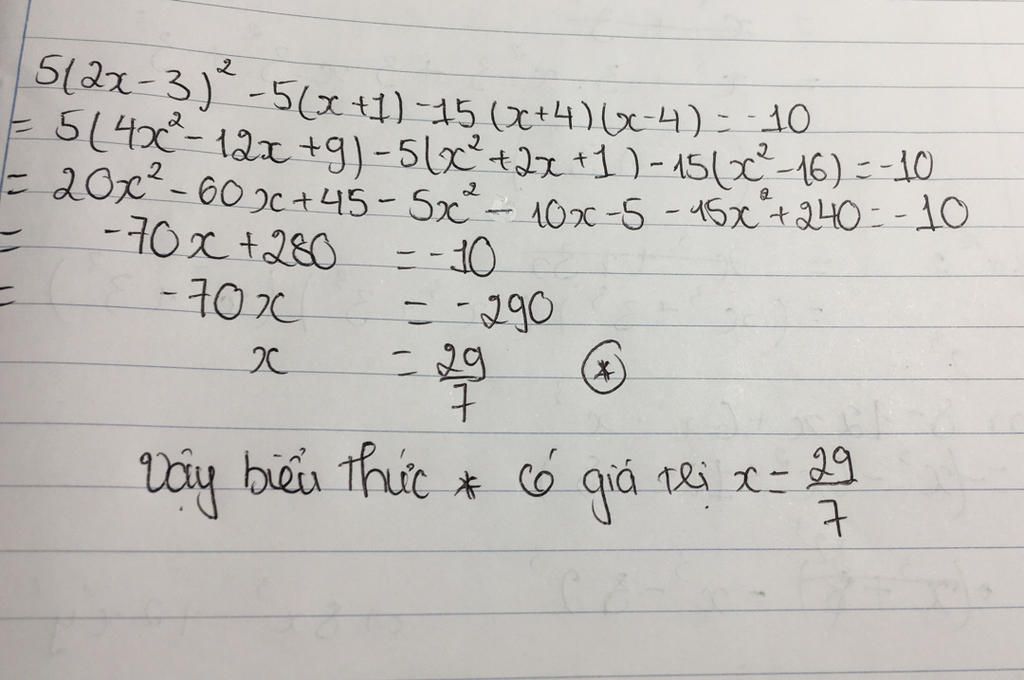 5(2x-3)² -5(x+1) -15(x+4)(x-4) = -10
= 5(4x²-12x+9) -5(x²+2x+1) -15(x²-16) = -10
= 20x²-60x+45-5x²-10x-5-15x²+240 = -10
= -70x+280 = -10
= -70x = -290
x = 29/7 ⊛
Vậy biểu thức * có giá trị x = 29/7